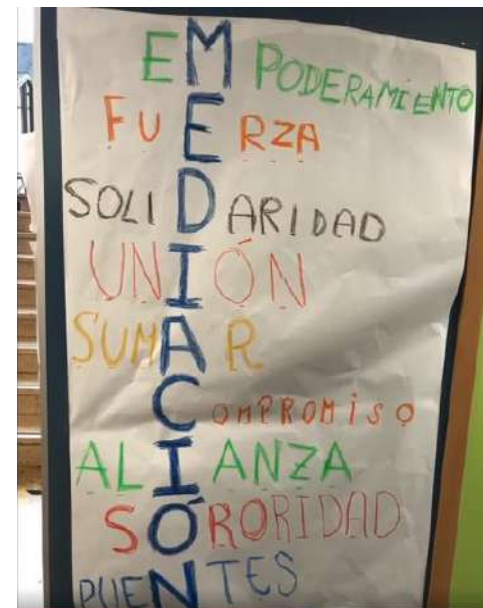 EMPODERAMIENTO
FUERZA
SOLIDARIDAD
UNIÓN
SUMAR
COMPROMISO
ALIANZA
SÓRORIDAD
PUENTES